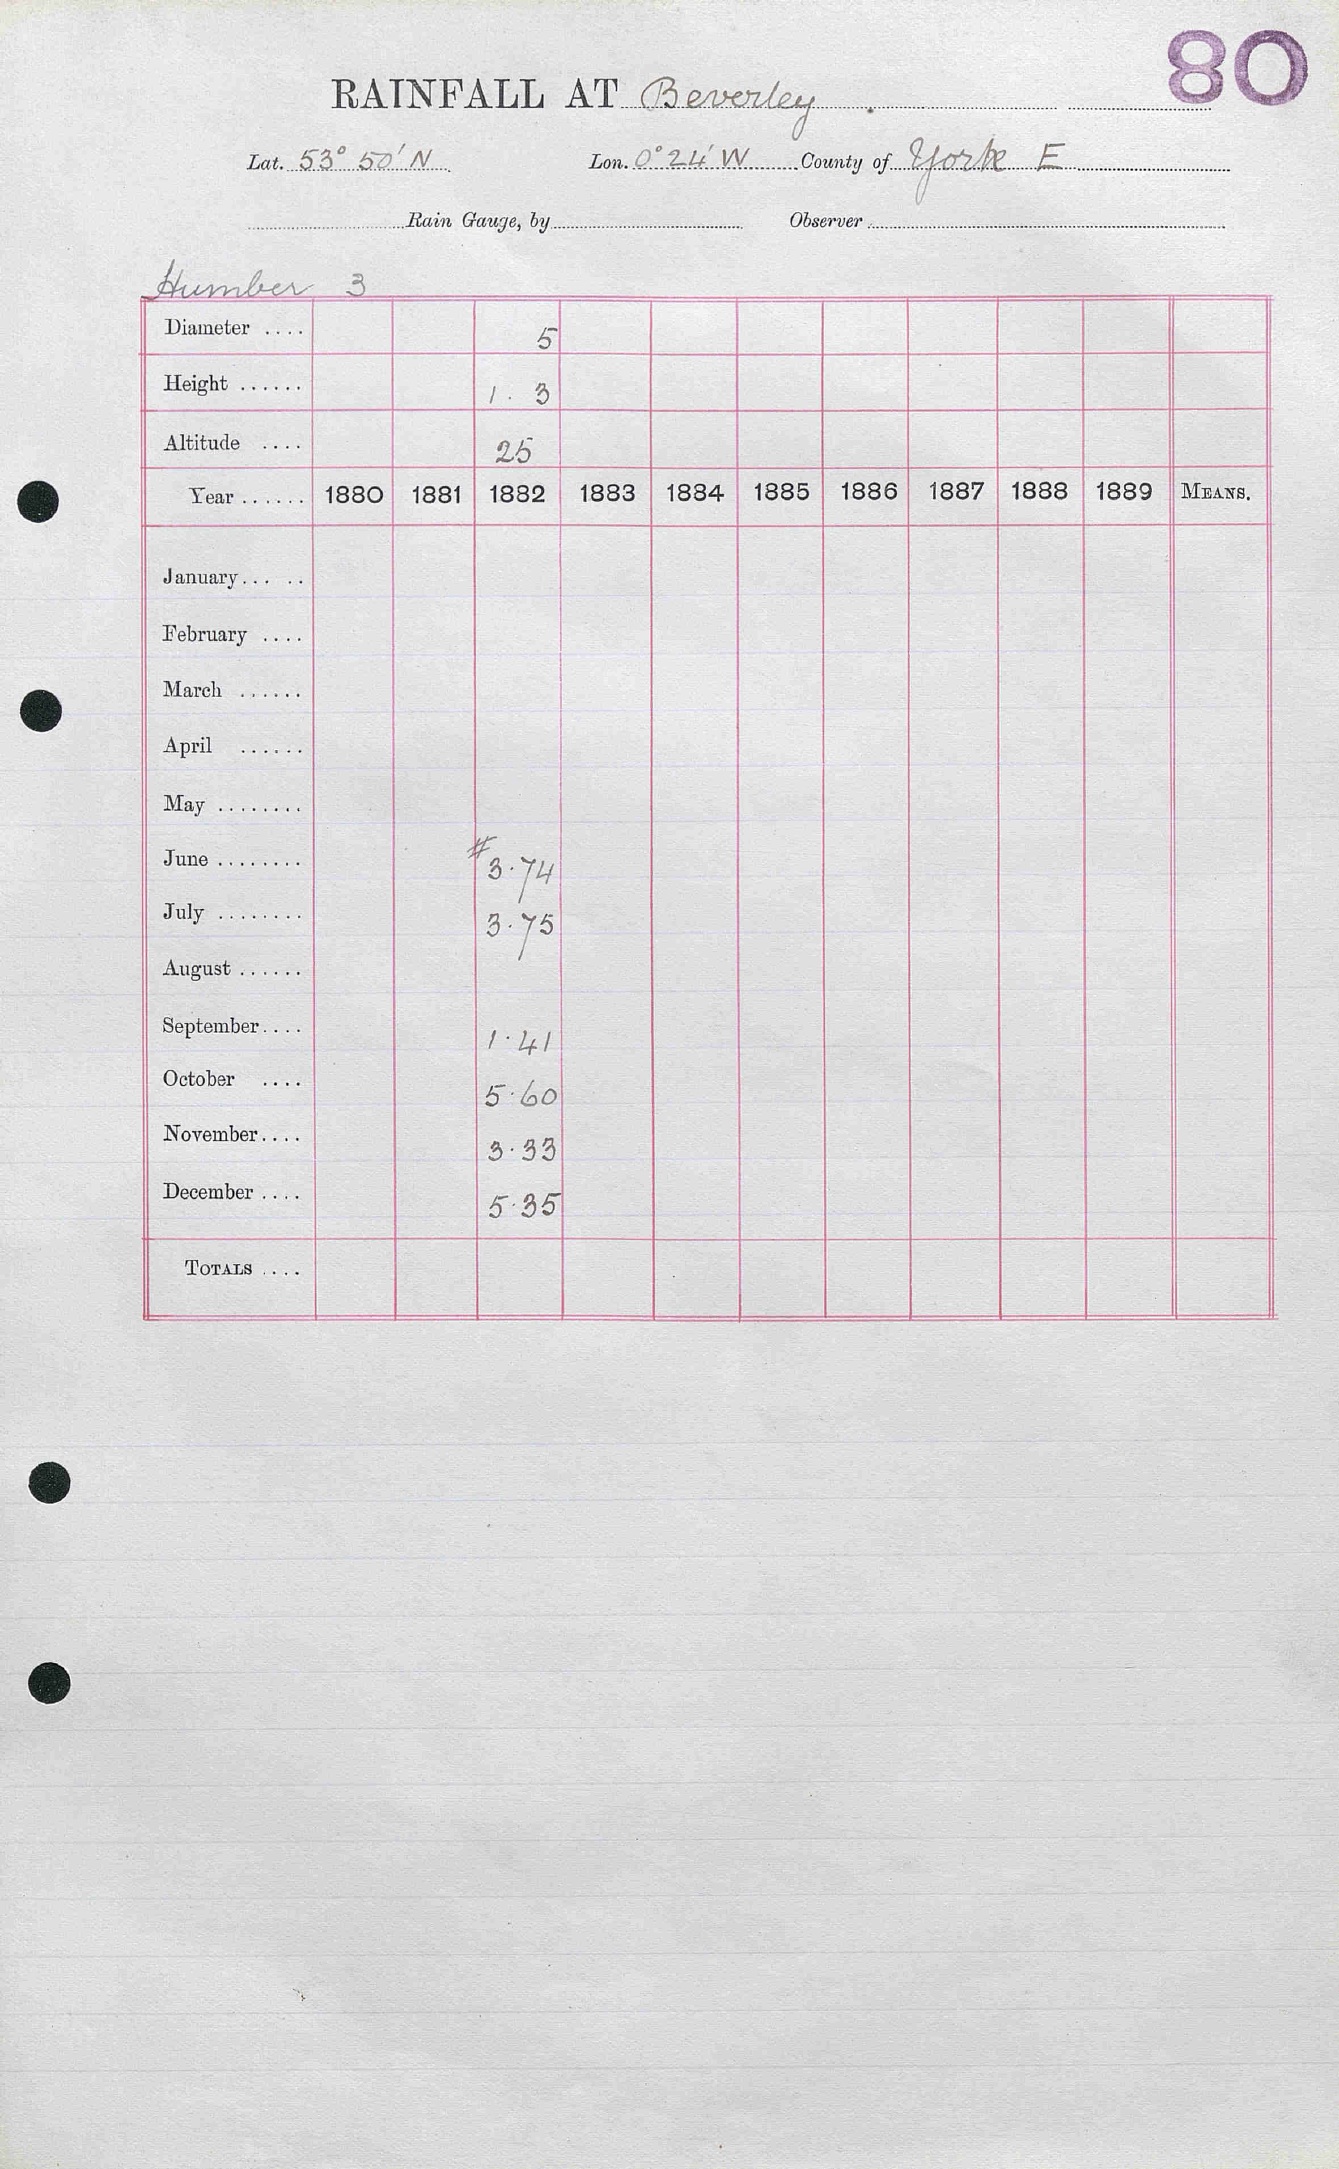 80
RAINFALL AT Beverley
Lat. 53° 50' N Lon. 0° 24' W County of York E
Rain Gauge, by Observer
Humber 3
Diameter .... 5
Height ...... 1. 3
Altitude .... 25
Year ...... 1880 1881 1882 1883 1884 1885 1886 1887 1888 1889 MEANS.
January... ..
February ....
March ......
April ......
May ........
June ........ # 3.74
July ........ 3.75
August ......
September.... 1.41
October .... 5.60
November.... 3.33
December .... 5.35
TOTALS ....